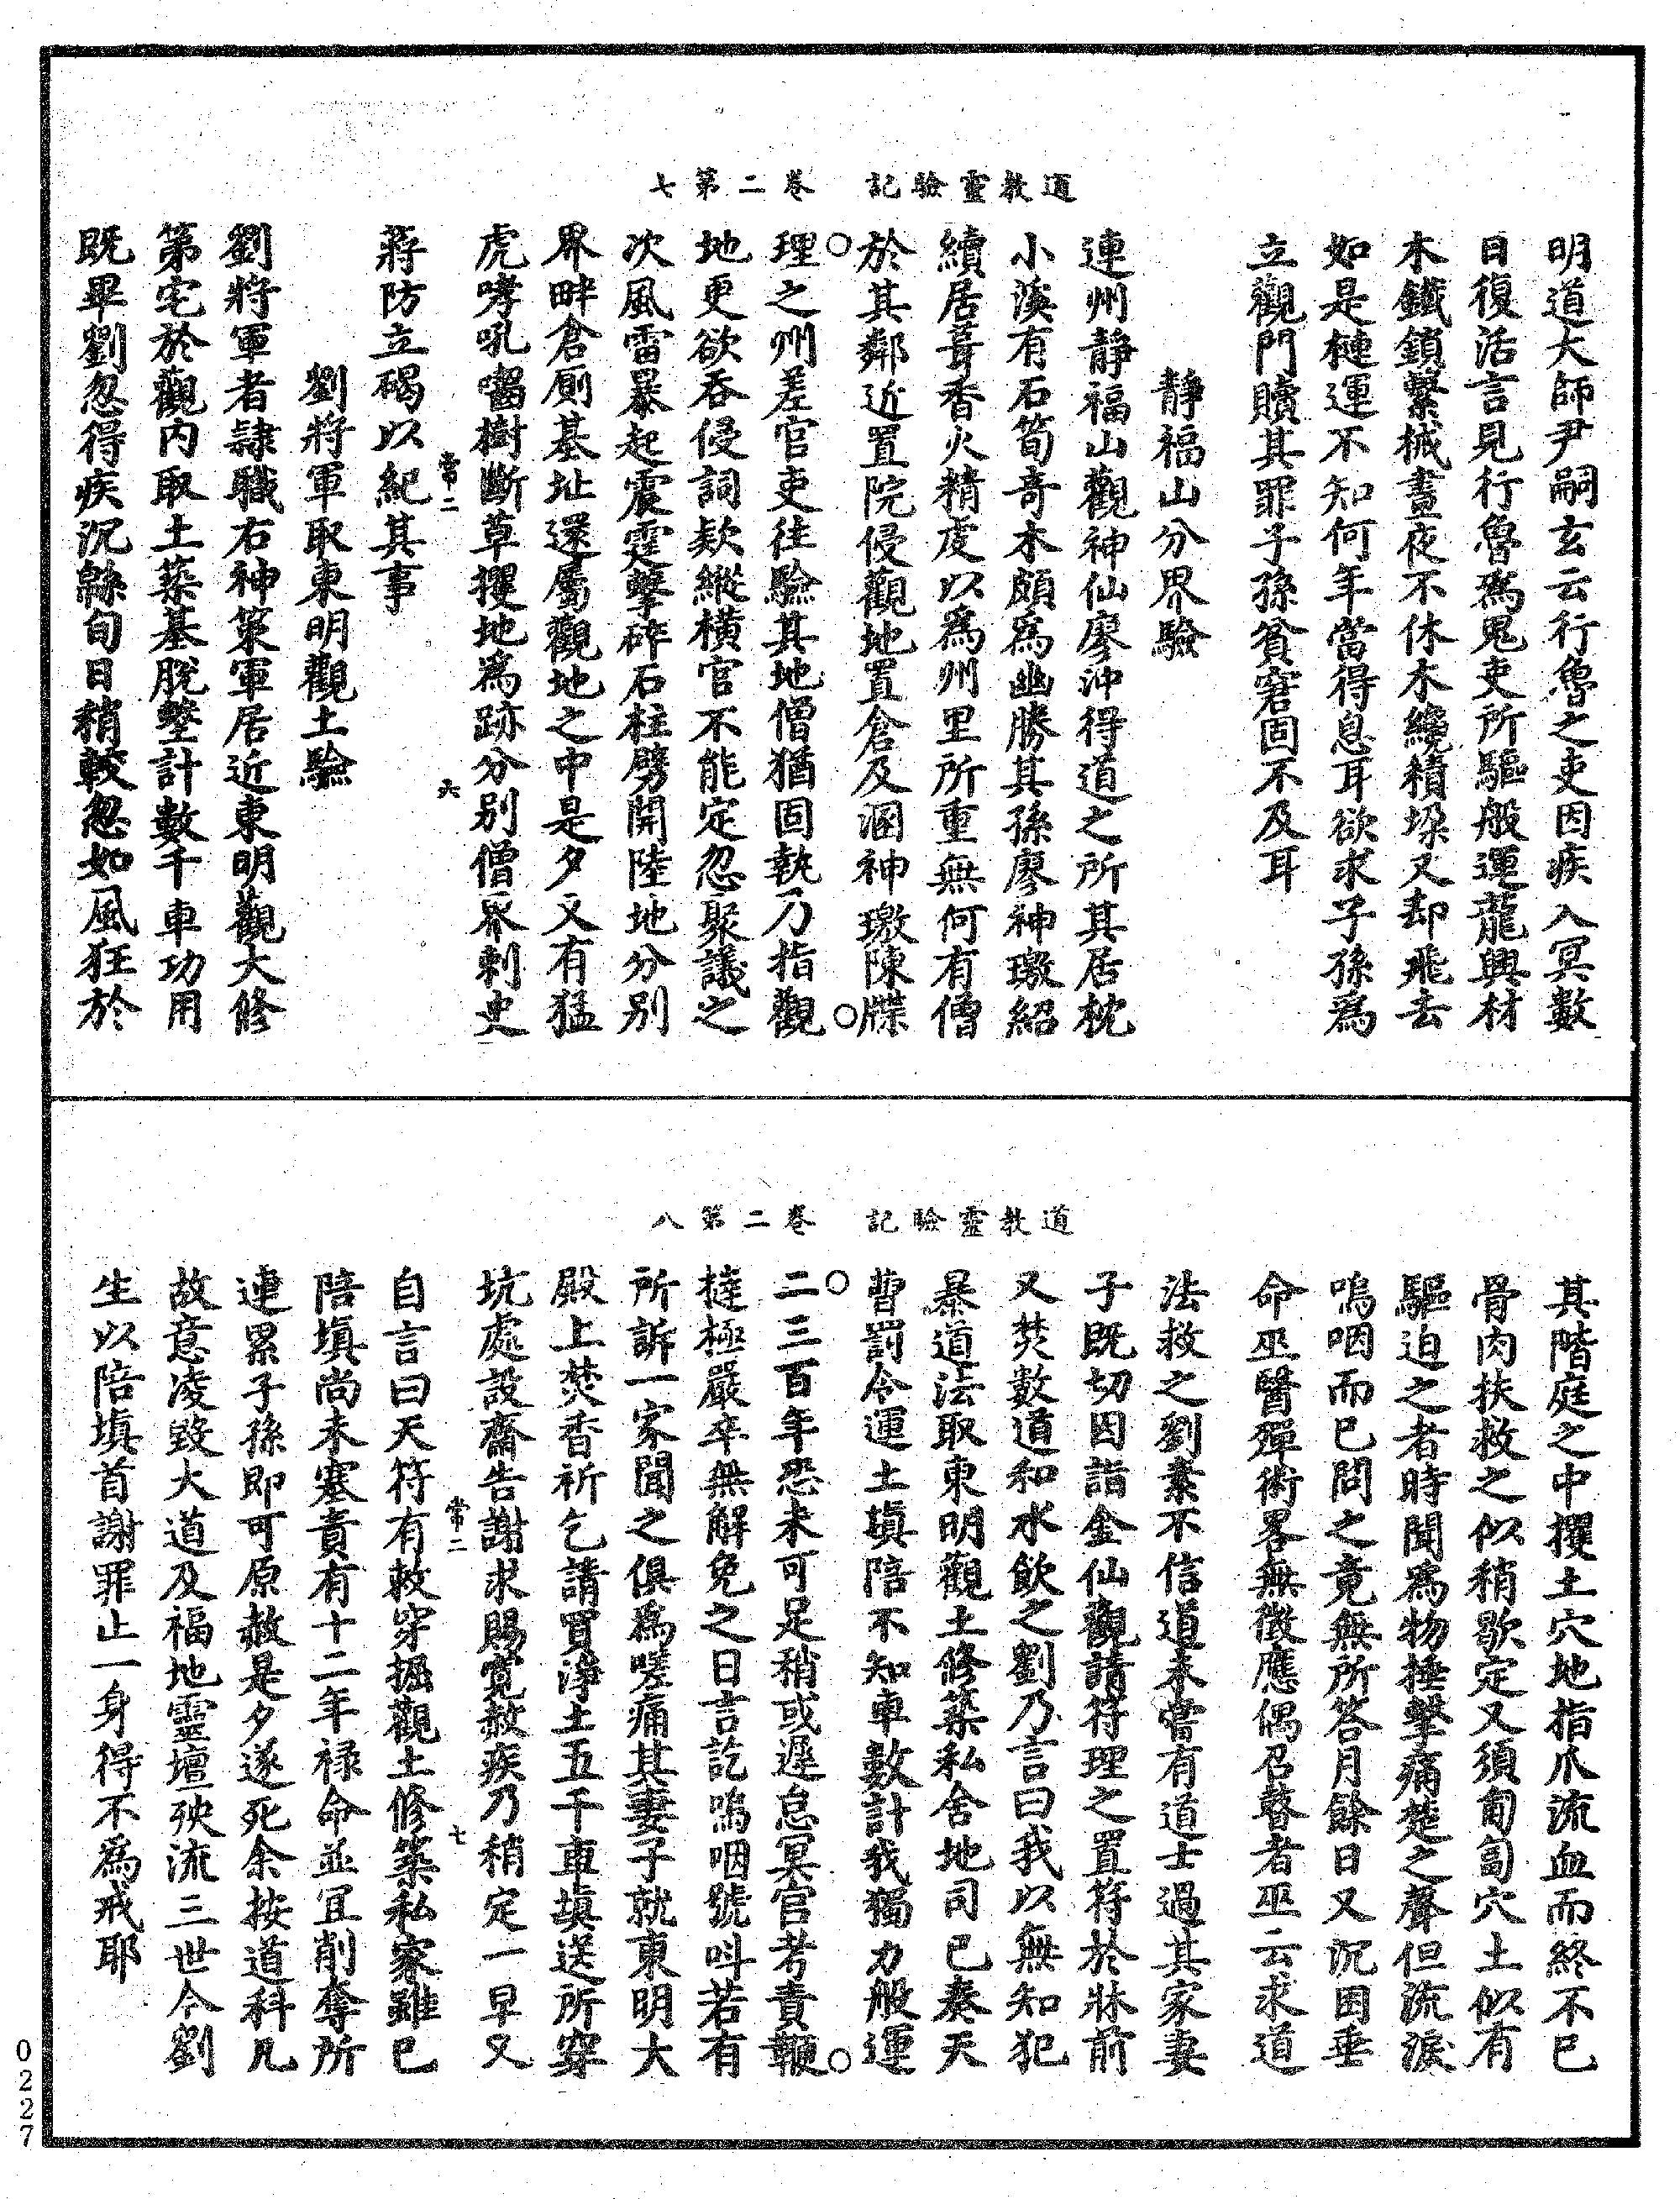 道教靈驗記　卷二第七
明道大師尹嗣玄云行魯之吏因疾入冥數
日復活言見行魯爲鬼吏所驅般運龍興材
木鐵鎖繫械晝夜不休木纔積垛又却飛去
如是槤運不知何年當得息耳欲求子孫爲
立觀門贖其罪子孫貧窘固不及耳
靜福山分界驗
連州靜福山觀神仙廖沖得道之所其居枕
小溪有石筍奇木頗爲幽勝其孫廖神璥紹
續居葺香火精虔以爲州里所重無何有僧
於其鄰近置院侵觀地置倉及溷神璥陳牒
理之州差官吏往驗其地僧猶固執乃指觀
地更欲吞侵詞款縱橫官不能定忽聚議之
次風雷暴起震霆擊碎石柱劈開陸地分別
界畔倉厠基址還屬觀地之中是夕又有猛
虎哮吼囓樹斷草攫地爲跡分別僧界刺史
常二　六
蔣防立碣以紀其事
劉將軍取東明觀土驗
劉將軍者隷職右神策軍居近東明觀大修
第宅於觀內取土築基脫墼計數千車功用
既畢劉忽得疾沉緜旬日稍較忽如風狂於
道教靈驗記　卷二第八
其階庭之中攫土穴地指爪流血而終不已
骨肉扶救之似稍歇定又須匍匐穴土似有
驅迫之者時聞爲物捶擊痛楚之聲但流淚
嗚咽而已問之竟無所答月餘日又沉困垂
命巫醫殫術畧無徵應偶召瞽者巫云求道
法救之劉素不信道未嘗有道士過其家妻
子既切因詣金仙觀請符理之置符於牀前
又焚數道和水飲之劉乃言曰我以無知犯
暴道法取東明觀土修築私舍地司已奏天
曹罰令運土填陪不知車數計我獨力般運
二三百年恐未可足稍或遲怠冥官考責鞭
撻極嚴卒無解免之日言訖嗚咽號叫若有
所訴一家聞之俱爲嗟痛其妻子就東明大
殿上焚香祈乞請買淨土五千車填送所穿
坑處設齋告謝求賜寬赦疾乃稍定一早又
常二　七
自言曰天符有敕穿掘觀土修築私家雖已
陪填尚未塞責有十二年禄命並宜削奪所
連累子孫即可原赦是夕遂死余按道科凡
故意凌毀大道及福地靈壇殃流三世今劉
生以陪填首謝罪止一身得不爲戒耶
0227